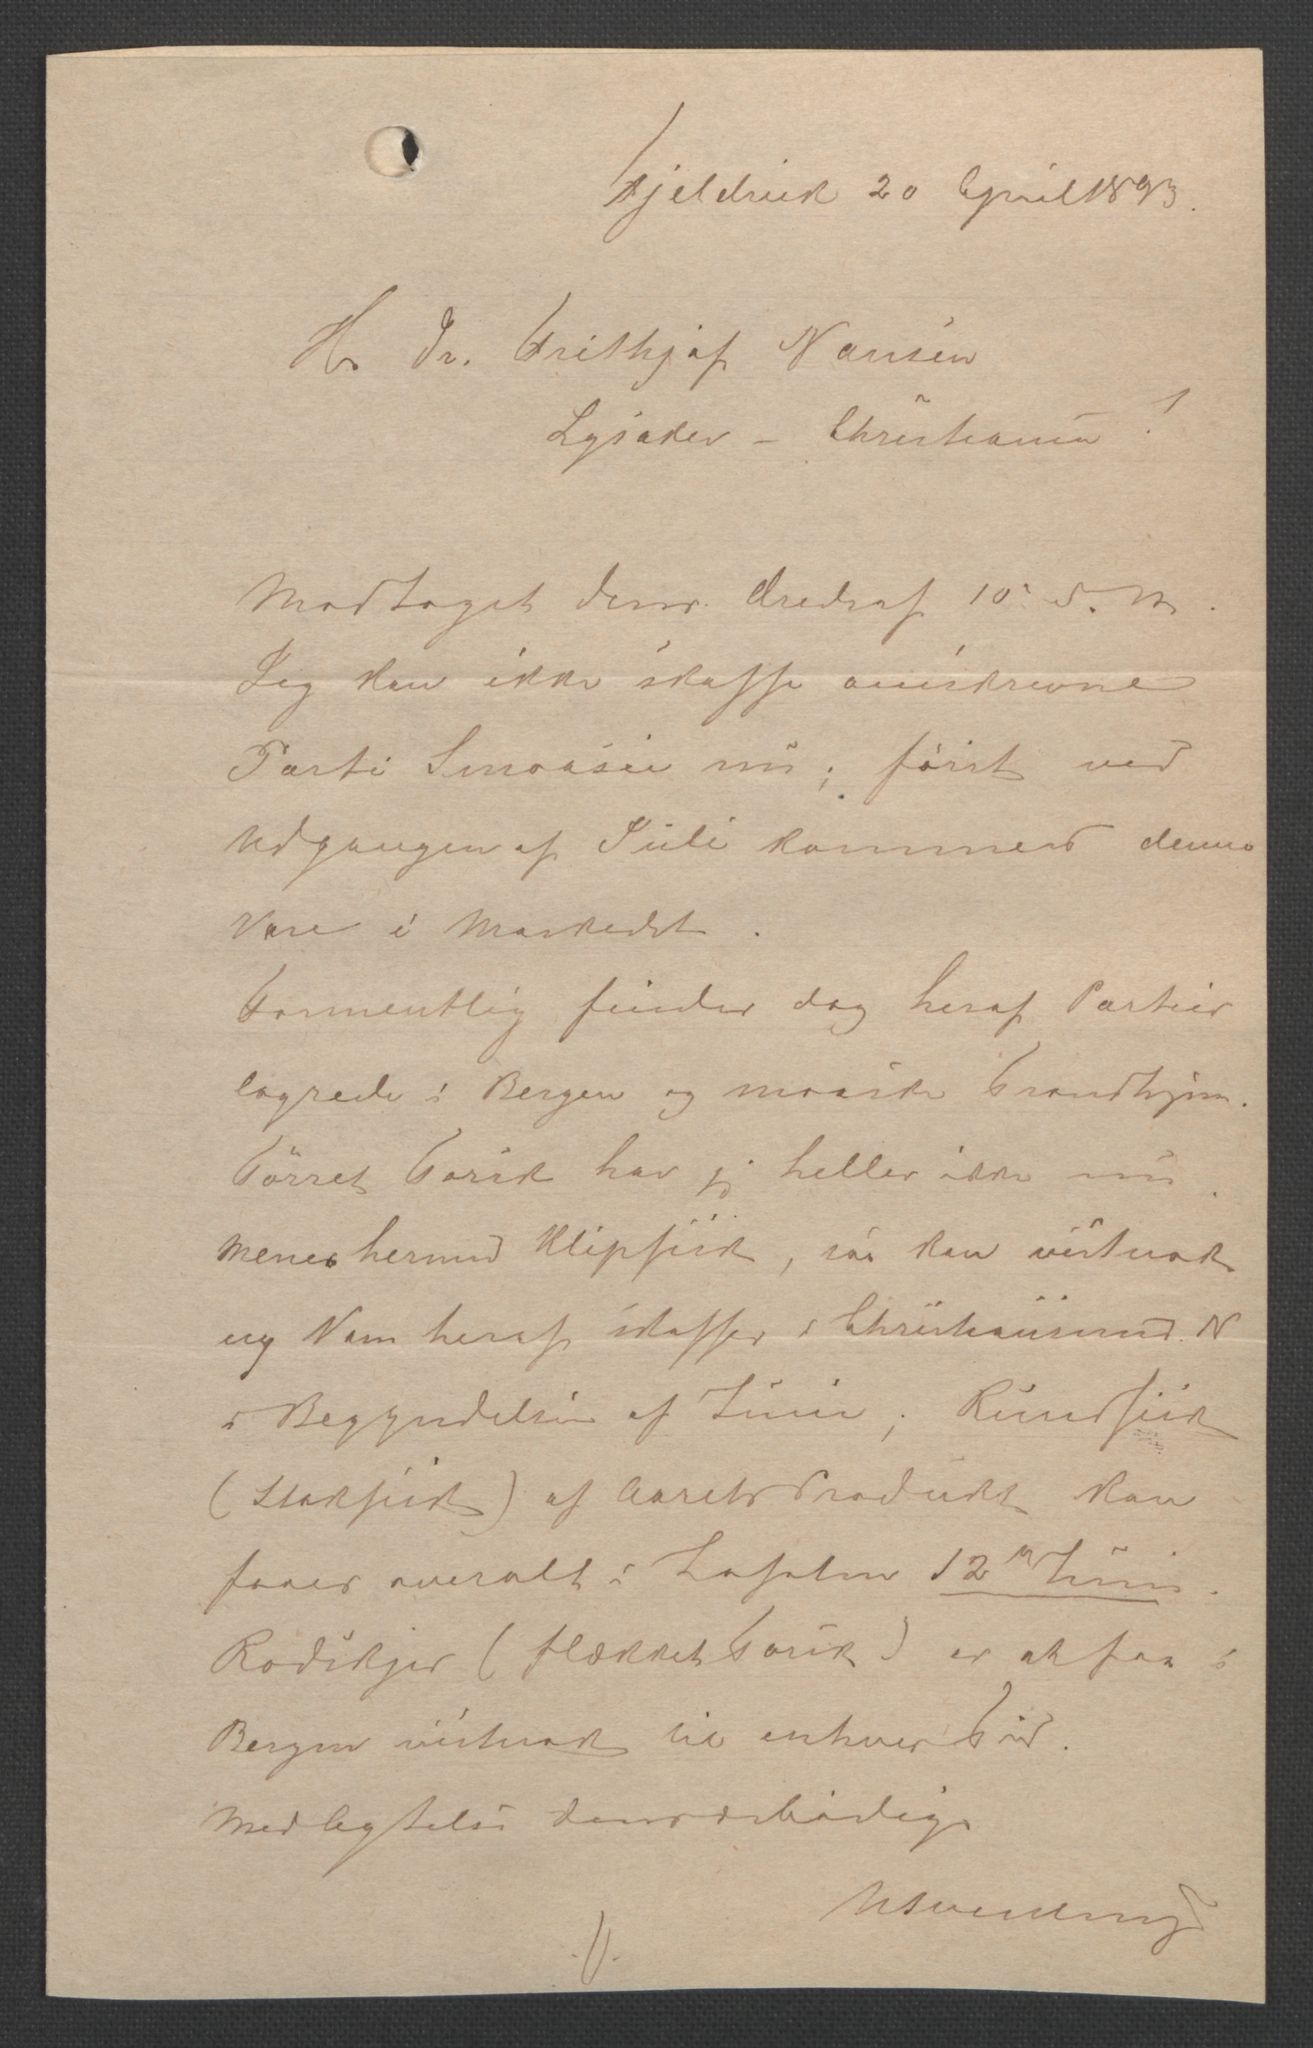 Kjeldvik 20 April 1893.
Hr Dr. Frithjof Nansen
Lysaker - Christiania!
Modtaget deres ærede af 10. d. M.
Jeg kan ikke skaffe omskrevne
Parti Smaasei nu; først ved
Udgangen af Juli kommer denne
Vare i Markedet.
Formentlig findes dog heraf Partier
lagrede i Bergen og maaske Trondhjem.
Tørret Torsk har jeg heller ikke nu.
Menes hermed Klipfisk, saa kan vistnok
ny Vare heraf skaffes i Christiansund N
i Begyndelsen af Juni; Rundfisk
(Stokfisk) af Aarets Produkt kan
faaes overalt i Lofoten 12te Juni.
Rodskjær (flækket Torsk) er at faa i
Bergen vistnok til enhver Tid.
Med Agtelse deres ærbødige
./.